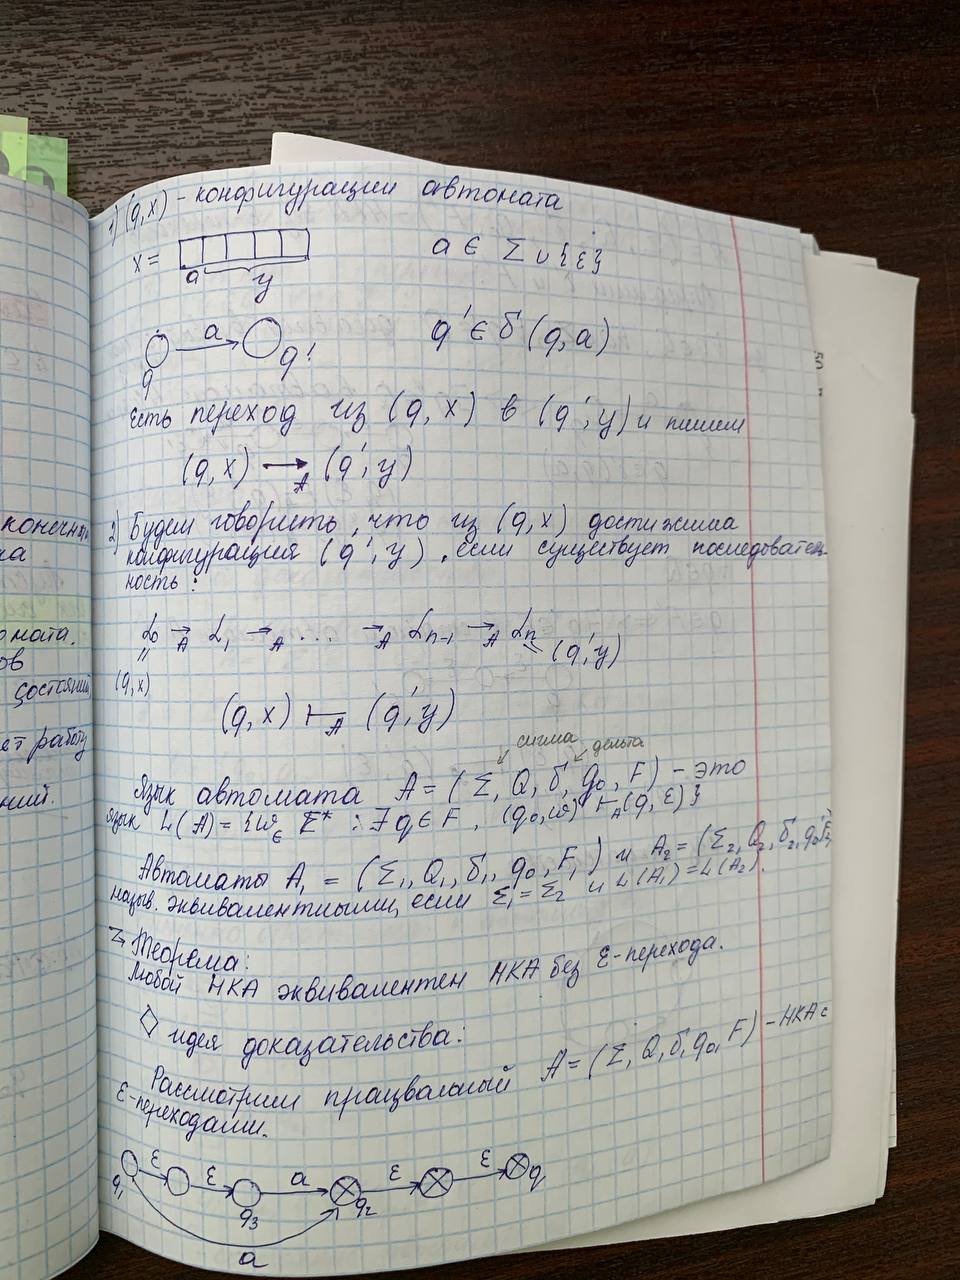 1) (q,x) - конфигурации автомата
x =
a y
a ∈ Σ ∪ {ε}
q a q'
q' ∈ δ (q, a)
Есть переход из (q, x) в (q', y) и пишем
(q, x) →A (q', y)
2) Будем говорить, что из (q, x) достижима
конфигурация (q', y), если существует последователь
ность:
α0 →A α1 →A ... →A αn-1 →A αn
= (q', y)
(q,x)
(q, x) ⊢A (q', y)
сигма дельта
Язык автомата A = (Σ, Q, δ, q0, F) - это
язык L(A) = {w ∈ Σ* : ∃ q ∈ F, (q0, w) ⊢A (q, ε)}
Автоматы A1 = (Σ1, Q1, δ1, q0, F1) и A2 = (Σ2, Q2, δ2, q0', F2)
назыв. эквивалентными, если Σ1 = Σ2 и L(A1) = L(A2).
Теорема:
Любой НКА эквивалентен НКА без ε-перехода.
◇ идея доказательства:
Рассмотрим працвальный A = (Σ, Q, δ, q0, F) - НКА с
ε-переходами.
ε ε a ε ε
q1 q3 q2 q
a
конечн
ка
омата.
ов
состояний
ет работу
ний.